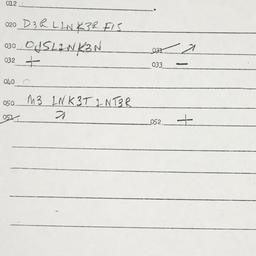 012
020 D3R L1NK3R F1S
030 OUSL1NK3N 031
032 + 033 −
040
050 M3 1NK3T 1NT3R
051 052 +